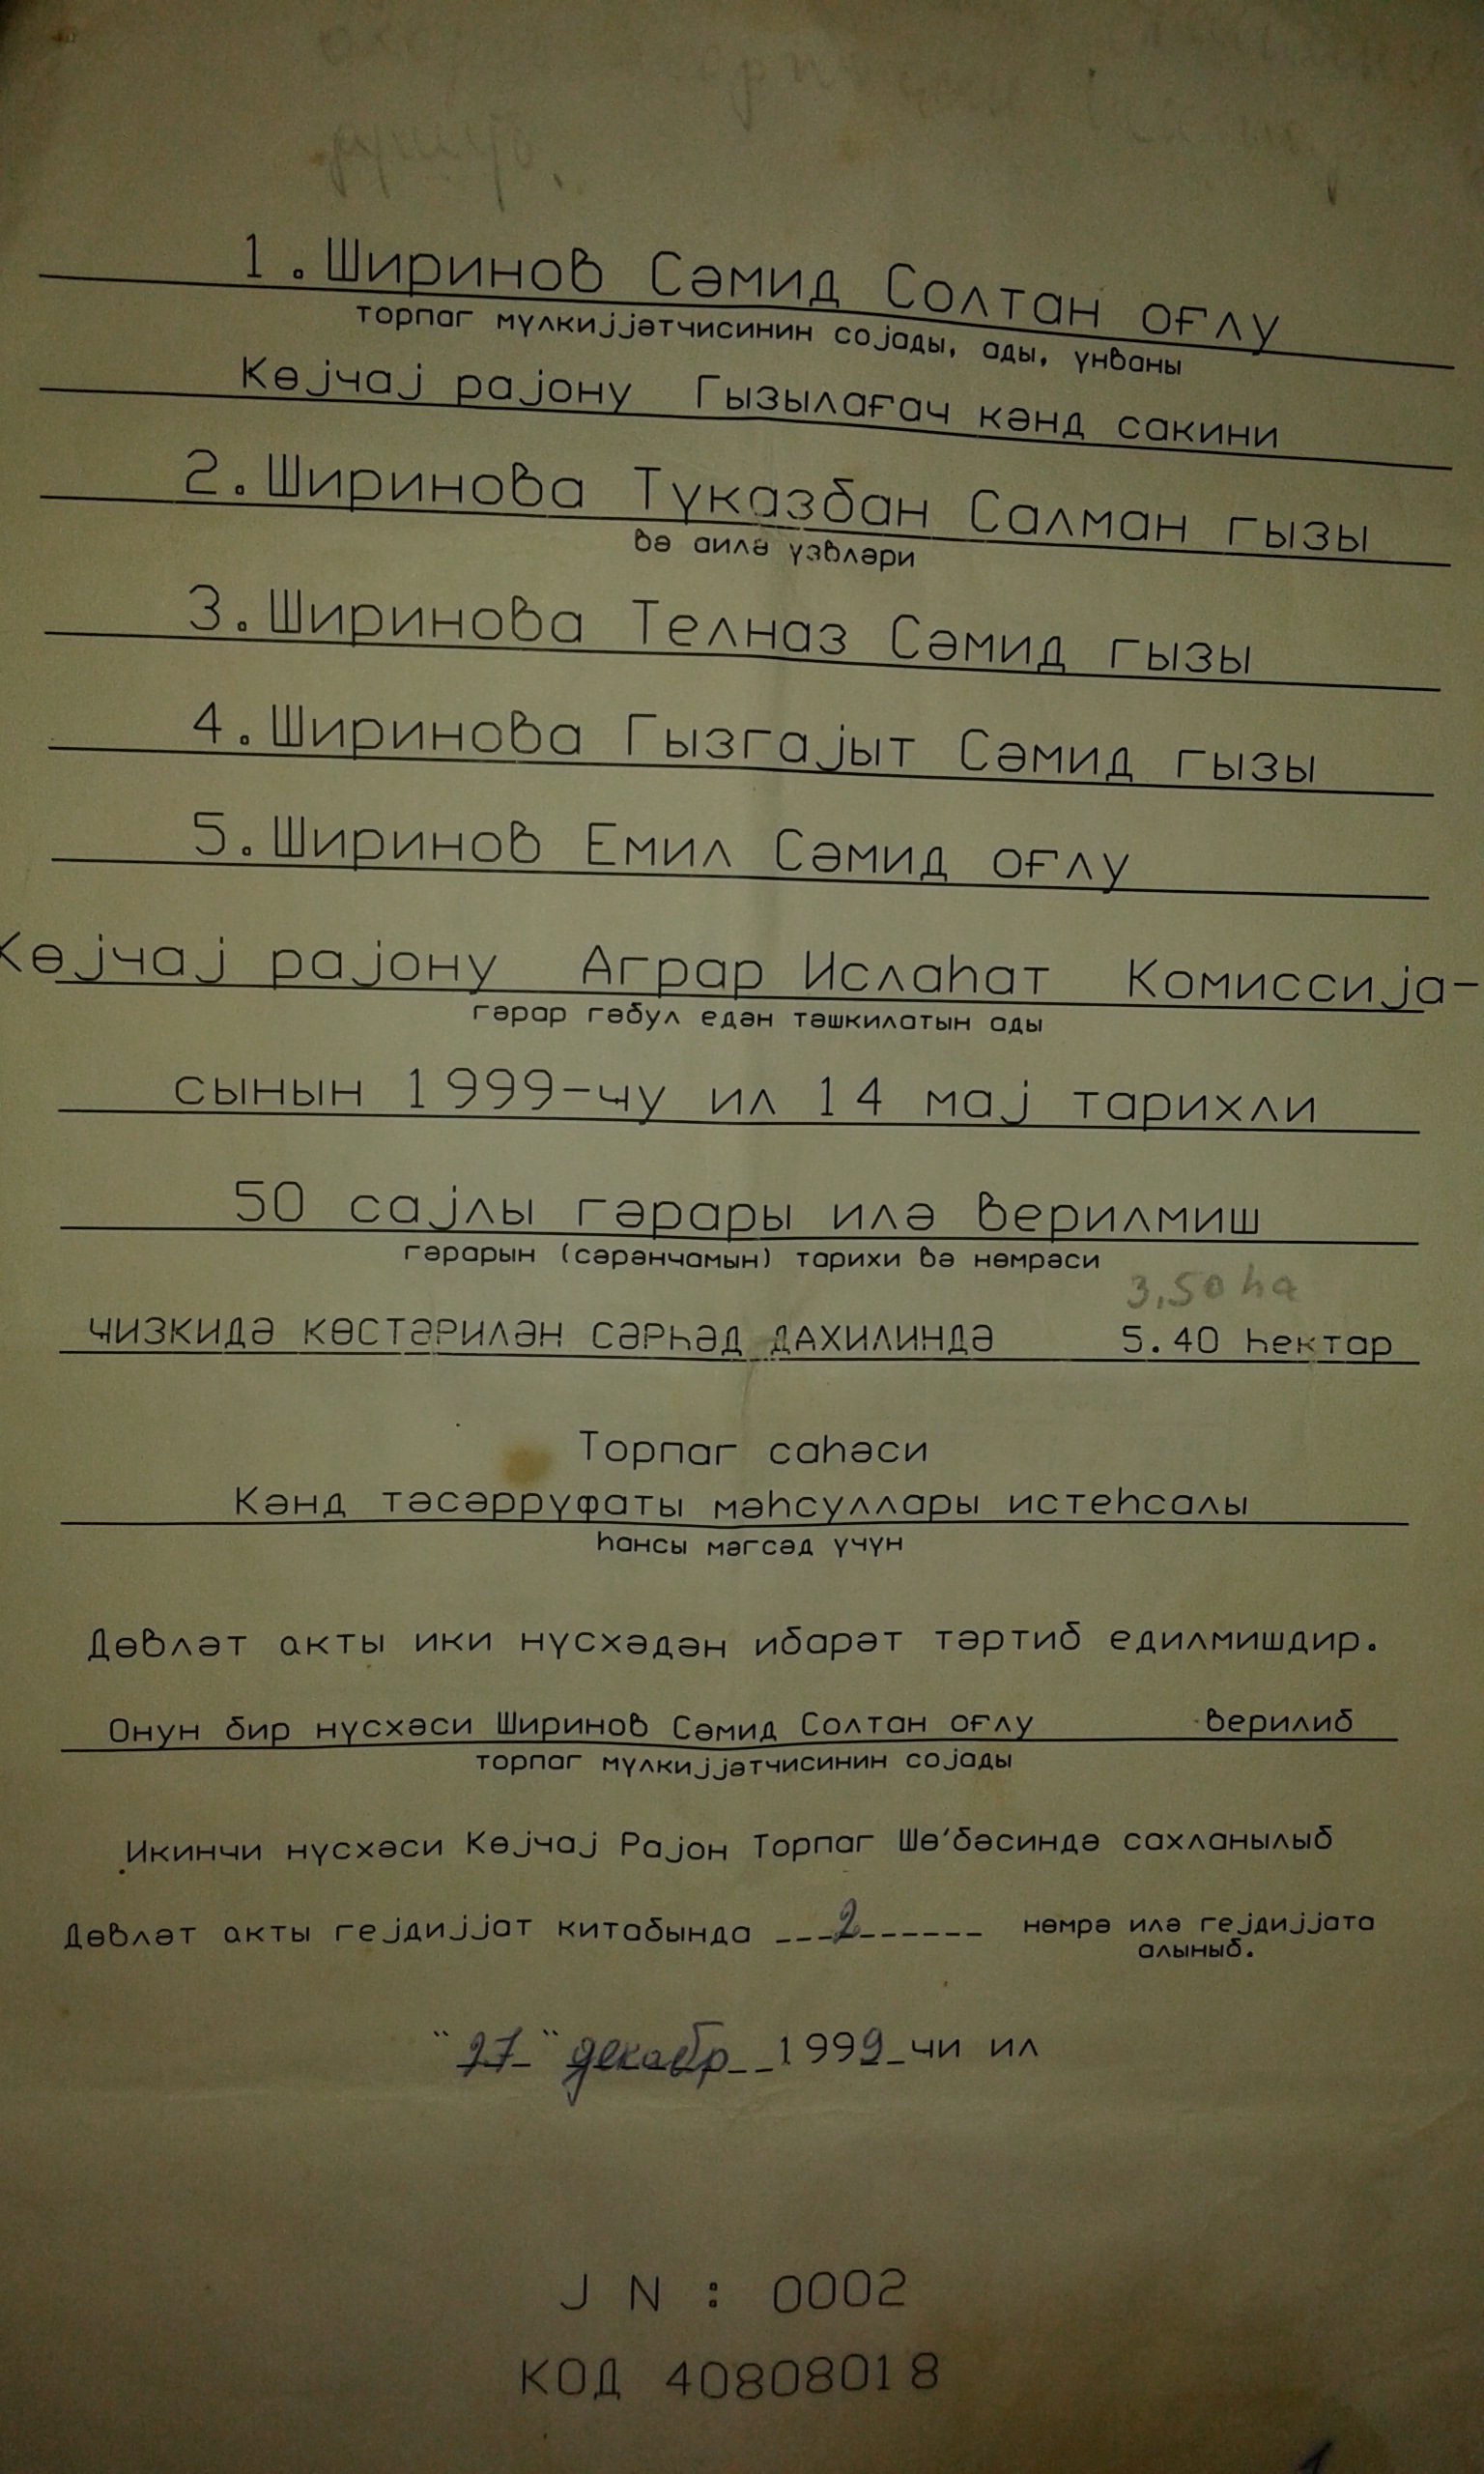 1.Ширинов Сәмид Солтан оғлу
торпаг мүлкијјәтчисинин сојады, ады, үнваны
Көјчај рајону Гызылағач кәнд сакини
2.Ширинова Түказбан Салман гызы
вә аилә үзвләри
3.Ширинова Телназ Сәмид гызы
4.Ширинова Гызгајыт Сәмид гызы
5.Ширинов Емил Сәмид оғлу
Көјчај рајону Аграр Ислаһат Комиссија-
гәрар гәбул едән тәшкилатын ады
сынын 1999-чу ил 14 мај тарихли
50 сајлы гәрары илә верилмиш
гәрарын (сәрәнчамын) тарихи вә нөмрәси
3,50 һа
ҹИЗКИДӘ КӨСТӘРИЛӘН СӘРҺӘД ДАХИЛИНДӘ 5.40 һектар
Торпаг саһәси
Кәнд тәсәррүфаты мәһсуллары истеһсалы
һансы мәгсәд үчүн
Дөвләт акты ики нүсхәдән ибарәт тәртиб едилмишдир.
Онун бир нүсхәси Ширинов Сәмид Солтан оғлу верилиб
торпаг мүлкијјәтчисинин сојады
Икинчи нүсхәси Көјчај Рајон Торпаг Шө'бәсиндә сахланылыб
Дөвләт акты гејдијјат китабында ---2------ нөмрә илә гејдијјата
алыныб.
"27" декабр__1999_чи ил
J N : 0002
КОД 40808018